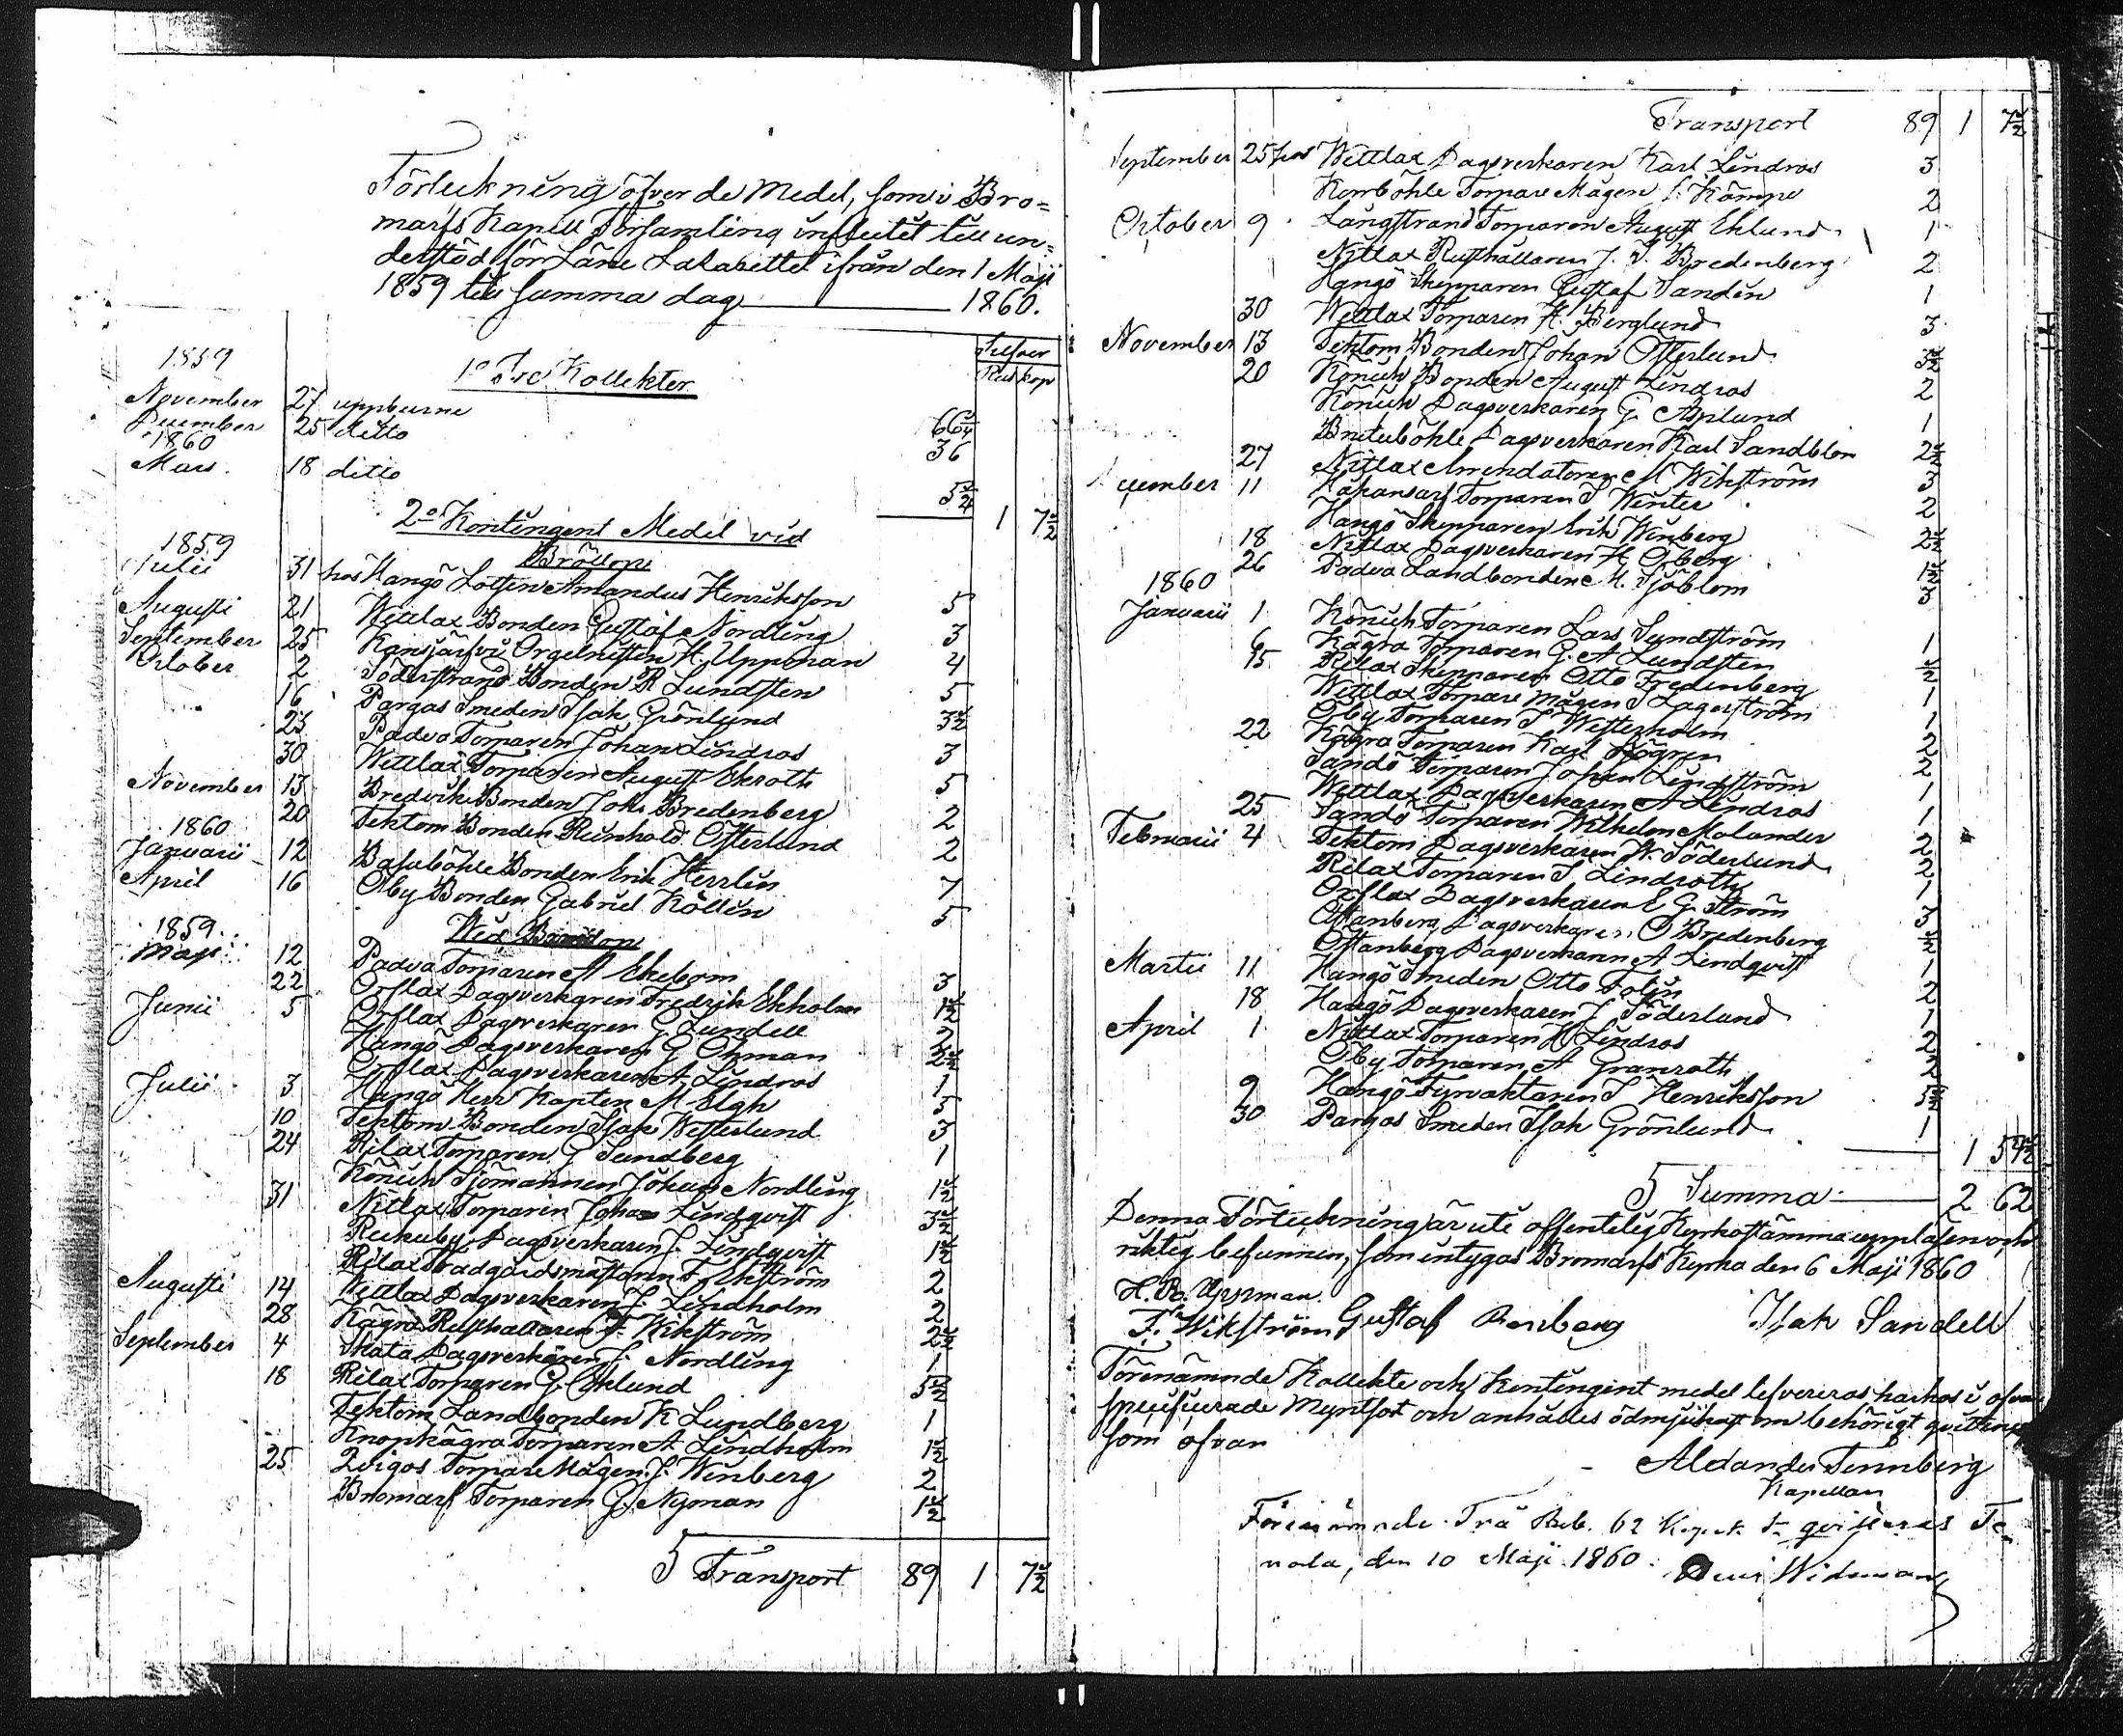 Förteckning öfver de Medel, som i Bro=
marfs Kapell Församling influtit till un=
derstöd för Läne Lazarettet ifrån den 1 Maji
1859 till samma dag 1860.
Silfver
Rub kop
1859
1o Tre Kollekter
November 27 uppburne 66 3/4
December 25 ditto 36
1860
Mars 18 ditto 5 3/4
1 7 1/2
2o Kontingent Medel vid
Bröllop
1859
Julii 31 hos Hangö Lotsen Amandus Henriksson 5
Augusti 21 Wettlax Bonden Gustaf Nordling 3
September 25 Kansjärfvi Orgelnisten H. Uppman 4
October 2 Söderstrand Bonden R Lundsten 5
16 Pargas Smeden Isak Grönlund 3 1/2
23 Padva Torparen Johan Lindros 3
30 Wettlax Torparen August Ekroth 5
November 13 Bredvik Bonden Joh. Bredenberg 2
20 Tektom Bonden Reinhold Österlund 2
1860
Januarii 12 Basaböhle Bonden Erik Herrlin 7
April 16 Öby Bonden Gabriel Köllin 5
1859
Wid
Maji 12 Padva Torparen A Ekebom 3
22 Orslax Dagsverkaren Fredrik Ekholm 1 1/2
Junii 5 Orslax Dagsverkaren G Lundell 2
Hangö Dagsverkaren G Öhman 2 1/2
Orslax Dagsverkaren A Lindros 1
Julii 3 Hangö Herr Kapten M Elgh 5
10 Tektom Bonden Isak Westerlund 3
24 Rilax Torparen G Sundberg 1
Könich Sjömannen Johan Nordling 1 1/2
31 Nitlax Torparen Johan Lindqvist 3 1/2
Rickaby Dagsverkaren J. Lindqvist 1 1/2
Rilax Trädgårdsmästaren F. Ekström 2
Augusti 14 Wettlax Dagsverkaren J. Lindholm 2
28 Kägra Rusthållaren F. Wikström 2 1/2
September 4 Skata Dagsverkaren J. Nordling 1
18 Rilax Torparen G. Öhlund 5 1/2
Tektom Landbonden K Lundberg 1
Knopkägra Torparen A Lindholm 1 1/2
25 Torpare Mågen J. Winberg 2
Bromarf Torparen G. Nyman 1 1/2
Transport 89 1 7 1/2
Transport 89 1 7 1/2
September 25 hos Wettlax Dagsverkaren Karl Lindros 3
Korsböhle Torpare Mågen J. Kämpe 2
October 9 Långstrand Torparen August Eklund 1
Nitlax Rusthållaren J. F. Bredenberg 2
Hangö Skepparen Gustaf Sandén 1
30 Wettlax Torparen H. Berglund 3
November 13 Tektom Bonden Johan Österlund 3 1/2
20 Könich Bonden August Lindros 2
Könich Dagsverkaren G. Asplund 1
Dagsverkaren Karl Sandblom 2 1/2
27 Nitlax Arrendatoren M Wikström 3
December 11 Håkansarf Torparen S Winter 2
Hangö Skepparen Erik Winberg 2 1/2
18 Nitlax Dagsverkaren H Öberg 1 1/2
26 Padva Landbonden M. Sjöblom 3
1860
Januarii 1 Könich Torparen Lars Sundström 1
6 Kägra Torparen G. A Lundsten 1/2
15 Rilax Skepparen Otto Fredenberg 1
Wettlax Torpare mågen S Lagerström 1
Öby Torparen S Westerholm 2
22 Kägra Torparen Karl Högren 2
Sandö Torparen Johan Lindström 1
Wettlax Dagsverkaren A Lindros 1
25 Sandö Torparen Wilhelm Malander 2
Februarii 4 Tektom Dagsverkaren W. Söderlund 2
Rilax Torparen S. Lindroth 1
Orslax Dagsverkaren E G. Ström 3
Östanberg Dagsverkaren O Bredenberg 1/2
Östanberg Dagsverkaren A Lindqvist 1
Martii 11 Hangö Smeden Otto Folin 2
18 Hangö Dagsverkaren J Söderlund 1
April 1 Nitlax Torparen H Lindros 2
Öby Torparen A Granroth 2
9 Hangö Fyrvaktaren S Henriksson 5 1/2
30 Pargas Smeden Isak Grönlund 1
1 54 1/2
Summa 2 62
Denna Förteckning är uti offentelig Kyrkostämma uppläsen och
riktig befunnen, som intygas Bromarfs Kyrka den 6 Maji 1860
H. R. Uppman.
F. Wikström Gustaf Renberg Isak Sandell
Förenämnde Kollekte och Kontingent medel lefvereras härhos i ofvan
specificerade Myntsort och anhålles ödmjukast om behörigt qvittence
som ofvan
Alexander Tennberg
Kapellan
Förenämnde Två Rub. 62 Kopek Sr qvitteras Te=
nala, den 10 Maji 1860. Wideman